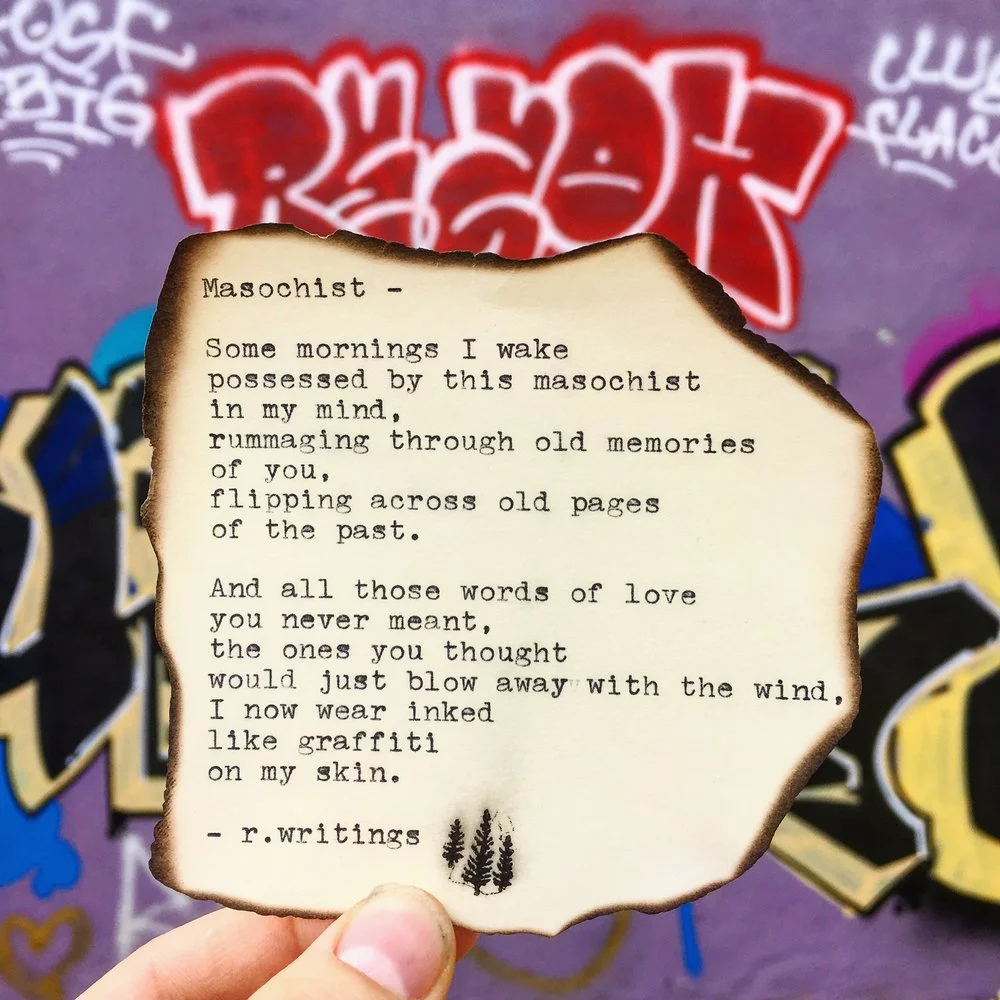 OSE
BIG
CLUB
FLACO
Masochist -
Some mornings I wake
possessed by this masochist
in my mind,
rummaging through old memories
of you,
flipping across old pages
of the past.
And all those words of love
you never meant,
the ones you thought
would just blow away with the wind,
I now wear inked
like graffiti
on my skin.
- r.writings